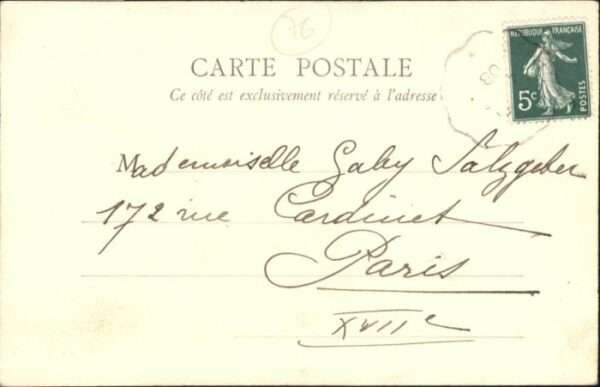 76
CARTE POSTALE
Ce côté est exclusivement réservé à l'adresse
RÉPUBLIQUE FRANÇAISE
5c
POSTES
08
Mademoiselle Gaby Salzgeber
172 rue Cardinet
Paris
XVIIe